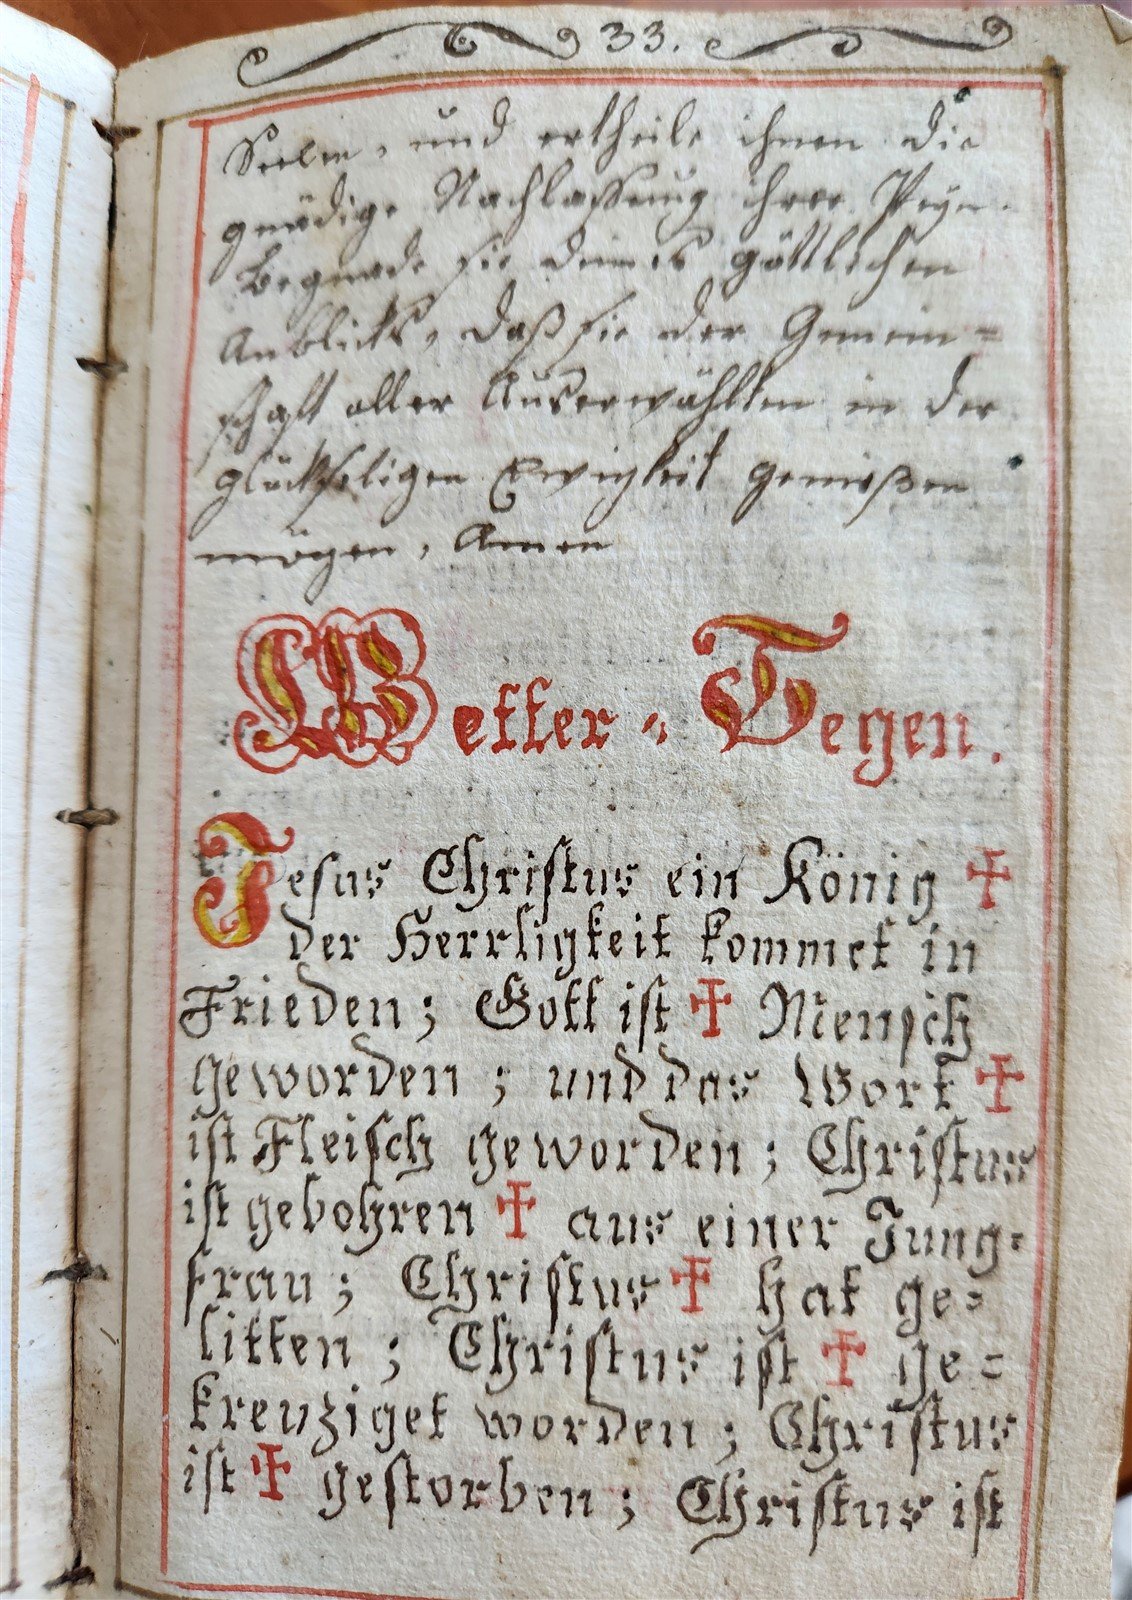 33.
Seelen, und ertheile ihnen die
gnädige Nachlassung ihrer Peyn.
Begnade sie deines göttlichen
Anblicks, daß sie der Gemein=
schaft aller Auserwählten in der
glückseligen Ewigkeit genießen
mögen, Amen
Wetter=Segen.
Jesus Christus ein König ✠
der Herrligkeit kommet in
Frieden; Gott ist ✠ Mensch
geworden; und das Wort ✠
ist Fleisch geworden; Christus
ist gebohren ✠ aus einer Jung=
frau; Christus ✠ hat ge=
litten; Christus ist ✠ ge=
kreuziget worden; Christus
ist ✠ gestorben; Christus ist